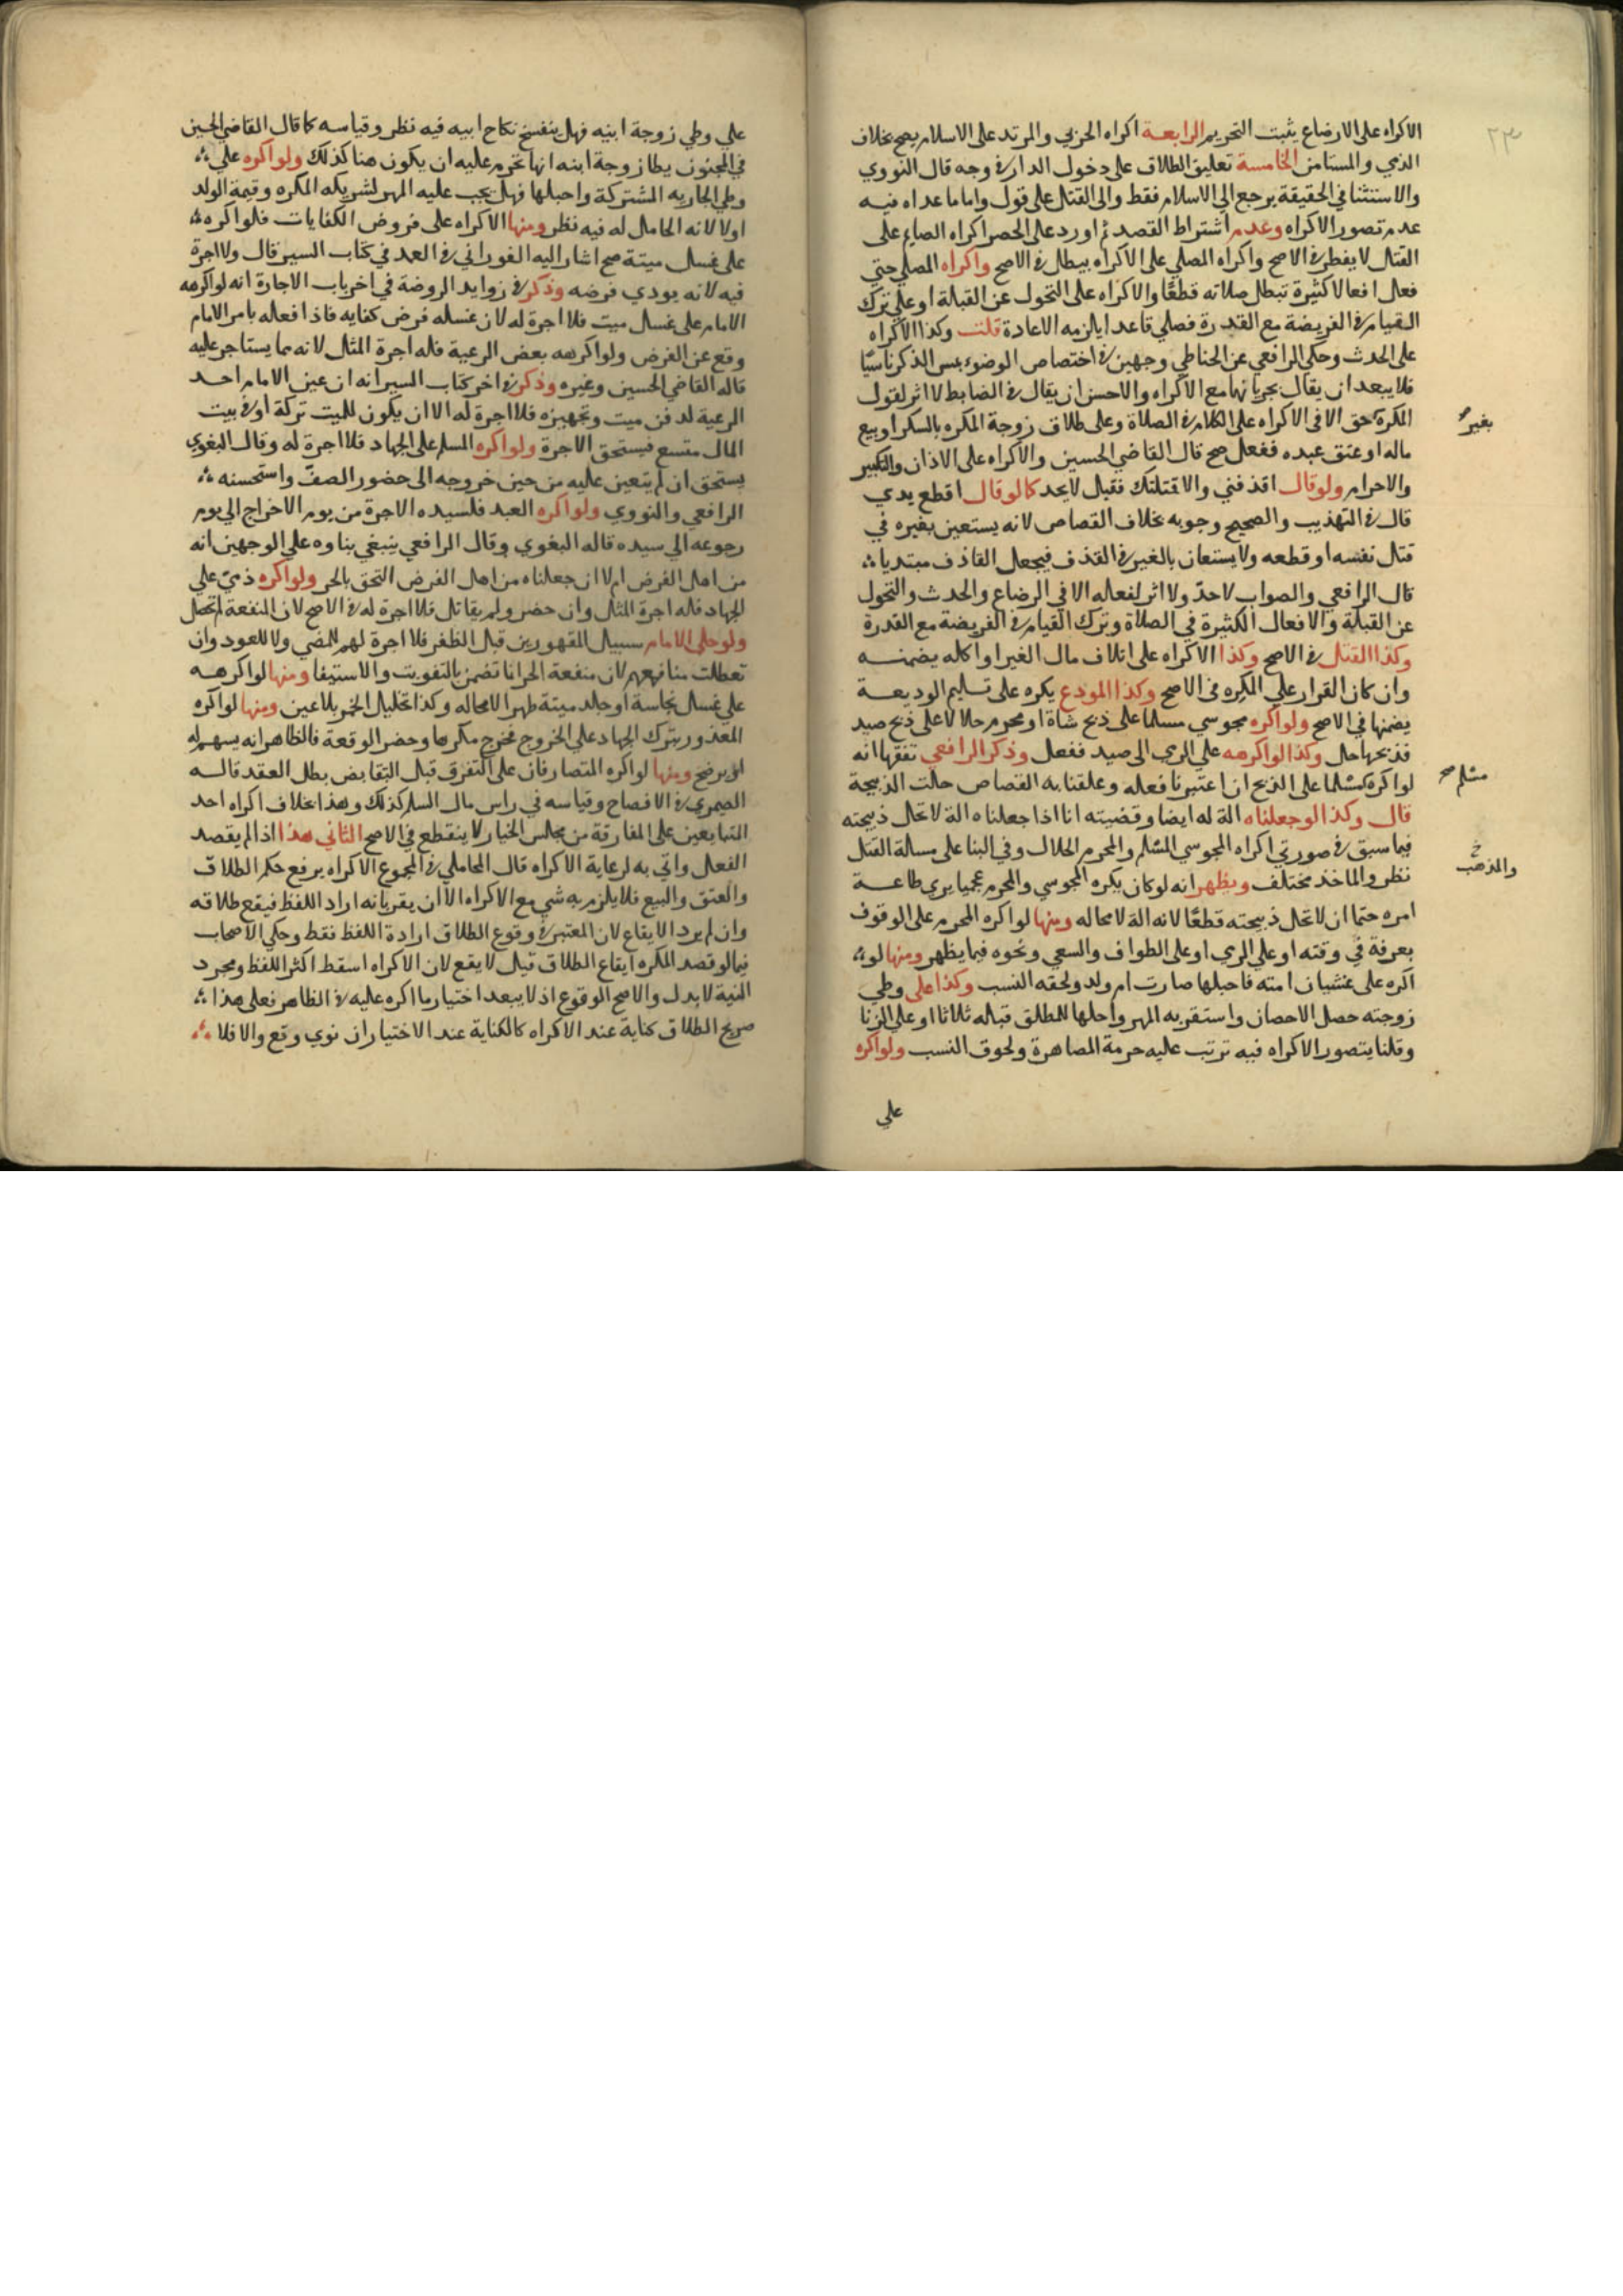 ٢٣
الاكراه على الارضاع يثبت التحريم الرابعة اكراه الحربي والمرتد على الاسلام يصح بخلاف
الذمي والمستامن الخامسة تعليق الطلاق على دخول الدار في وجه قال النووي
والاستثنا في الحقيقة يرجع الي الاسلام فقط والى القتل على قول واما ما عداه فيه
عدم تصور الاكراه وعدم اشتراط القصد ثم اورد على الحصر اكراه الصايم على
القتل لا يفطر في الاصح واكراه المصلي على الاكراه يبطل في الاصح واكراه المصلي حتي
فعل افعالا كثيرة تبطل صلاته قطعًا والاكراه على التحول عن القبلة او علي ترك
القيام في الفريضة مع القدرة فصلي قاعدا يلزمه الاعادة قلت وكذا الاكراه
على الحدث وحكى الرافعي عن الحناطي وجهين في اختصاص الوضوء بمس الذكر ناسيًا
فلا يبعد ان يقال بجريانها مع الاكراه والاحسن ان يقال في الضابط لا اثر لقول
المكره حق الا في الاكراه على الكلام في الصلاة وعلى طلاق زوجة المكره بالسكر او بيع
بغير
ماله او عتق عبده ففعل صح قال القاضي الحسين والاكراه على الاذان والتكبير
والاحرام ولو قال اقذفني والا قتلتك فقيل لا يحد كما لو قال اقطع يدي
قال في التهذيب والصحيح وجوبه بخلاف القصاص لانه يستعين بغيره في
قتل نفسه او قطعه ولا يستعان بالغير في القذف فيجعل القاذف مبتديا
قال الرافعي والصواب لا حدّ ولا اثر لفعله الا في الرضاع والحدث والتحول
عن القبلة والافعال الكثيرة في الصلاة وترك القيام في الفريضة مع القدرة
وكذا القتل في الاصح وكذا الاكراه على اتلاف مال الغير او اكله يضمنه
وان كان القرار علي المكرِه في الاصح وكذا المودع يكره على تسليم الوديعة
يضمنها في الاصح ولو اكره مجوسي مسلما على ذبح شاة او محرم حلالا على ذبح صيد
فذبحها حل وكذا لو اكرهه علي الرمي الى صيد ففعل وذكر الرافعي تفقها انه
لو اكره مسلما على الذبح ان اعتبرنا فعله وعلقنا به القصاص حلت الذبيحة
مسلم صح
قال وكذا لو جعلناه الة له ايضا وقضيته انا اذا جعلناه الة لا تحل ذبيحته
فيما سبق في صورتي اكراه المجوسي المسلم والمحرم الحلال وفي البنا على مسالة القتل
والمذهب خ
نظر والماخذ مختلف ويظهر انه لو كان يكره المجوسي والمحرم عجميا يري طاعة
امره حتما ان لا تحل ذبيحته قطعًا لانه الة لا محاله ومنها لو اكره المحرم على الوقوف
بعرفة في وقته او علي الرمي او على الطواف والسعي ونحوه فيما يظهر ومنها لو
اكره على غشيان امته فاحبلها صارت ام ولد ولحقه النسب وكذا على وطي
زوجته حصل الاحصان واستقر به المهر واحلها للمطلق قبله ثلاثا او علي الزنا
وقلنا يتصور الاكراه فيه ترتب عليه حرمة المصاهرة ولحوق النسب ولو اكره
علي
علي وطي زوجة ابنيه فهل ينفسخ نكاح ابيه فيه نظر وقياسه كما قال القاضي الحسين
في المجنون يطا زوجة ابنه انها تحرم عليه ان يكون هنا كذلك ولو اكره علي
وطي الجاريه المشتركة واحبلها فهل يجب عليه المهر لشريكه المكره وقيمة الولد
اولا لانه الحامل له فيه نظر ومنها الاكراه على فروض الكفايات فلو اكره
على غسل ميتة صح اشار اليه الفوراني في العمد في كتاب السير قال ولا اجرة
فيه لانه يودي فرضه وذكر في زوايد الروضة في اخر باب الاجارة انه لو اكرهه
الامام على غسل ميت فلا اجرة له لان غسله فرض كفايه فاذا فعله بامر الامام
وقع عن الفرض ولو اكرهه بعض الرعية فله اجرة المثل لانه مما يستاجر عليه
قاله القاضي الحسين وغيره وذكر في اخر كتاب السير انه ان عين الامام احد
الرعية لدفن ميت وتجهيزه فلا اجرة له الا ان يكون للميت تركة او في بيت
المال متسع فيستحق الاجرة ولو اكره المسلم على الجهاد فلا اجرة له وقال البغوي
يستحق ان لم يتعين عليه من حين خروجه الى حضور الصفّ واستحسنه
الرافعي والنووي ولو اكره العبد فلسيده الاجرة من يوم الاخراج الي يوم
رجوعه الي سيده قاله البغوي وقال الرافعي ينبغي بناوه علي الوجهين انه
من اهل الفرض ام لا ان جعلناه من اهل الفرض التحق بالحر ولو اكره ذمي علي
الجهاد فله اجرة المثل وان حضر ولم يقاتل فلا اجرة له في الاصح لان المنفعة لم تحصل
ولو خلى الامام سبيل المقهورين قبل الظفر فلا اجرة لهم للمضي ولا للعود وان
تعطلت منافعهم لان منفعة الحر انما تضمن بالتفويت والاستيفا ومنها لو اكرهه
علي غسل نجاسة او جلد ميتة طهر لا محاله وكذا تخليل الخمر بلا عين ومنها لو اكره
المعذور بترك الجهاد على الخروج فخرج مكرها وحضر الوقعة فالظاهر انه يسهم له
او يرضخ ومنها لو اكره المتصارفان على التفرق قبل التقابض بطل العقد قاله
الصيمري في الافصاح وقياسه في راس مال السلم كذلك وهذا بخلاف اكراه احد
المتبايعين على المفارقة من مجلس الخيار لا ينقطع في الاصح الثاني هذا اذا لم يقصد
الفعل واتي به لرعاية الاكراه قال المحاملي في المجموع الاكراه يرفع حكم الطلاق
والعتق والبيع فلا يلزم به شي مع الاكراه الا ان يقر بانه اراد اللفظ فيقع طلاقه
وان لم يرد الايقاع لان المعتبر في وقوع الطلاق ارادة اللفظ فقط وحكي الاصحاب
فيما لو قصد المكره ايقاع الطلاق قيل لا يقع لان الاكراه اسقط اكثر اللفظ ومجرد
النية لا بدل والاصح الوقوع اذ لا يبعد اختيار ما اكره عليه في الظاهر فعلى هذا
صريح الطلاق كناية عند الاكراه كالكناية عند الاختيار ان نوي وقع والا فلا